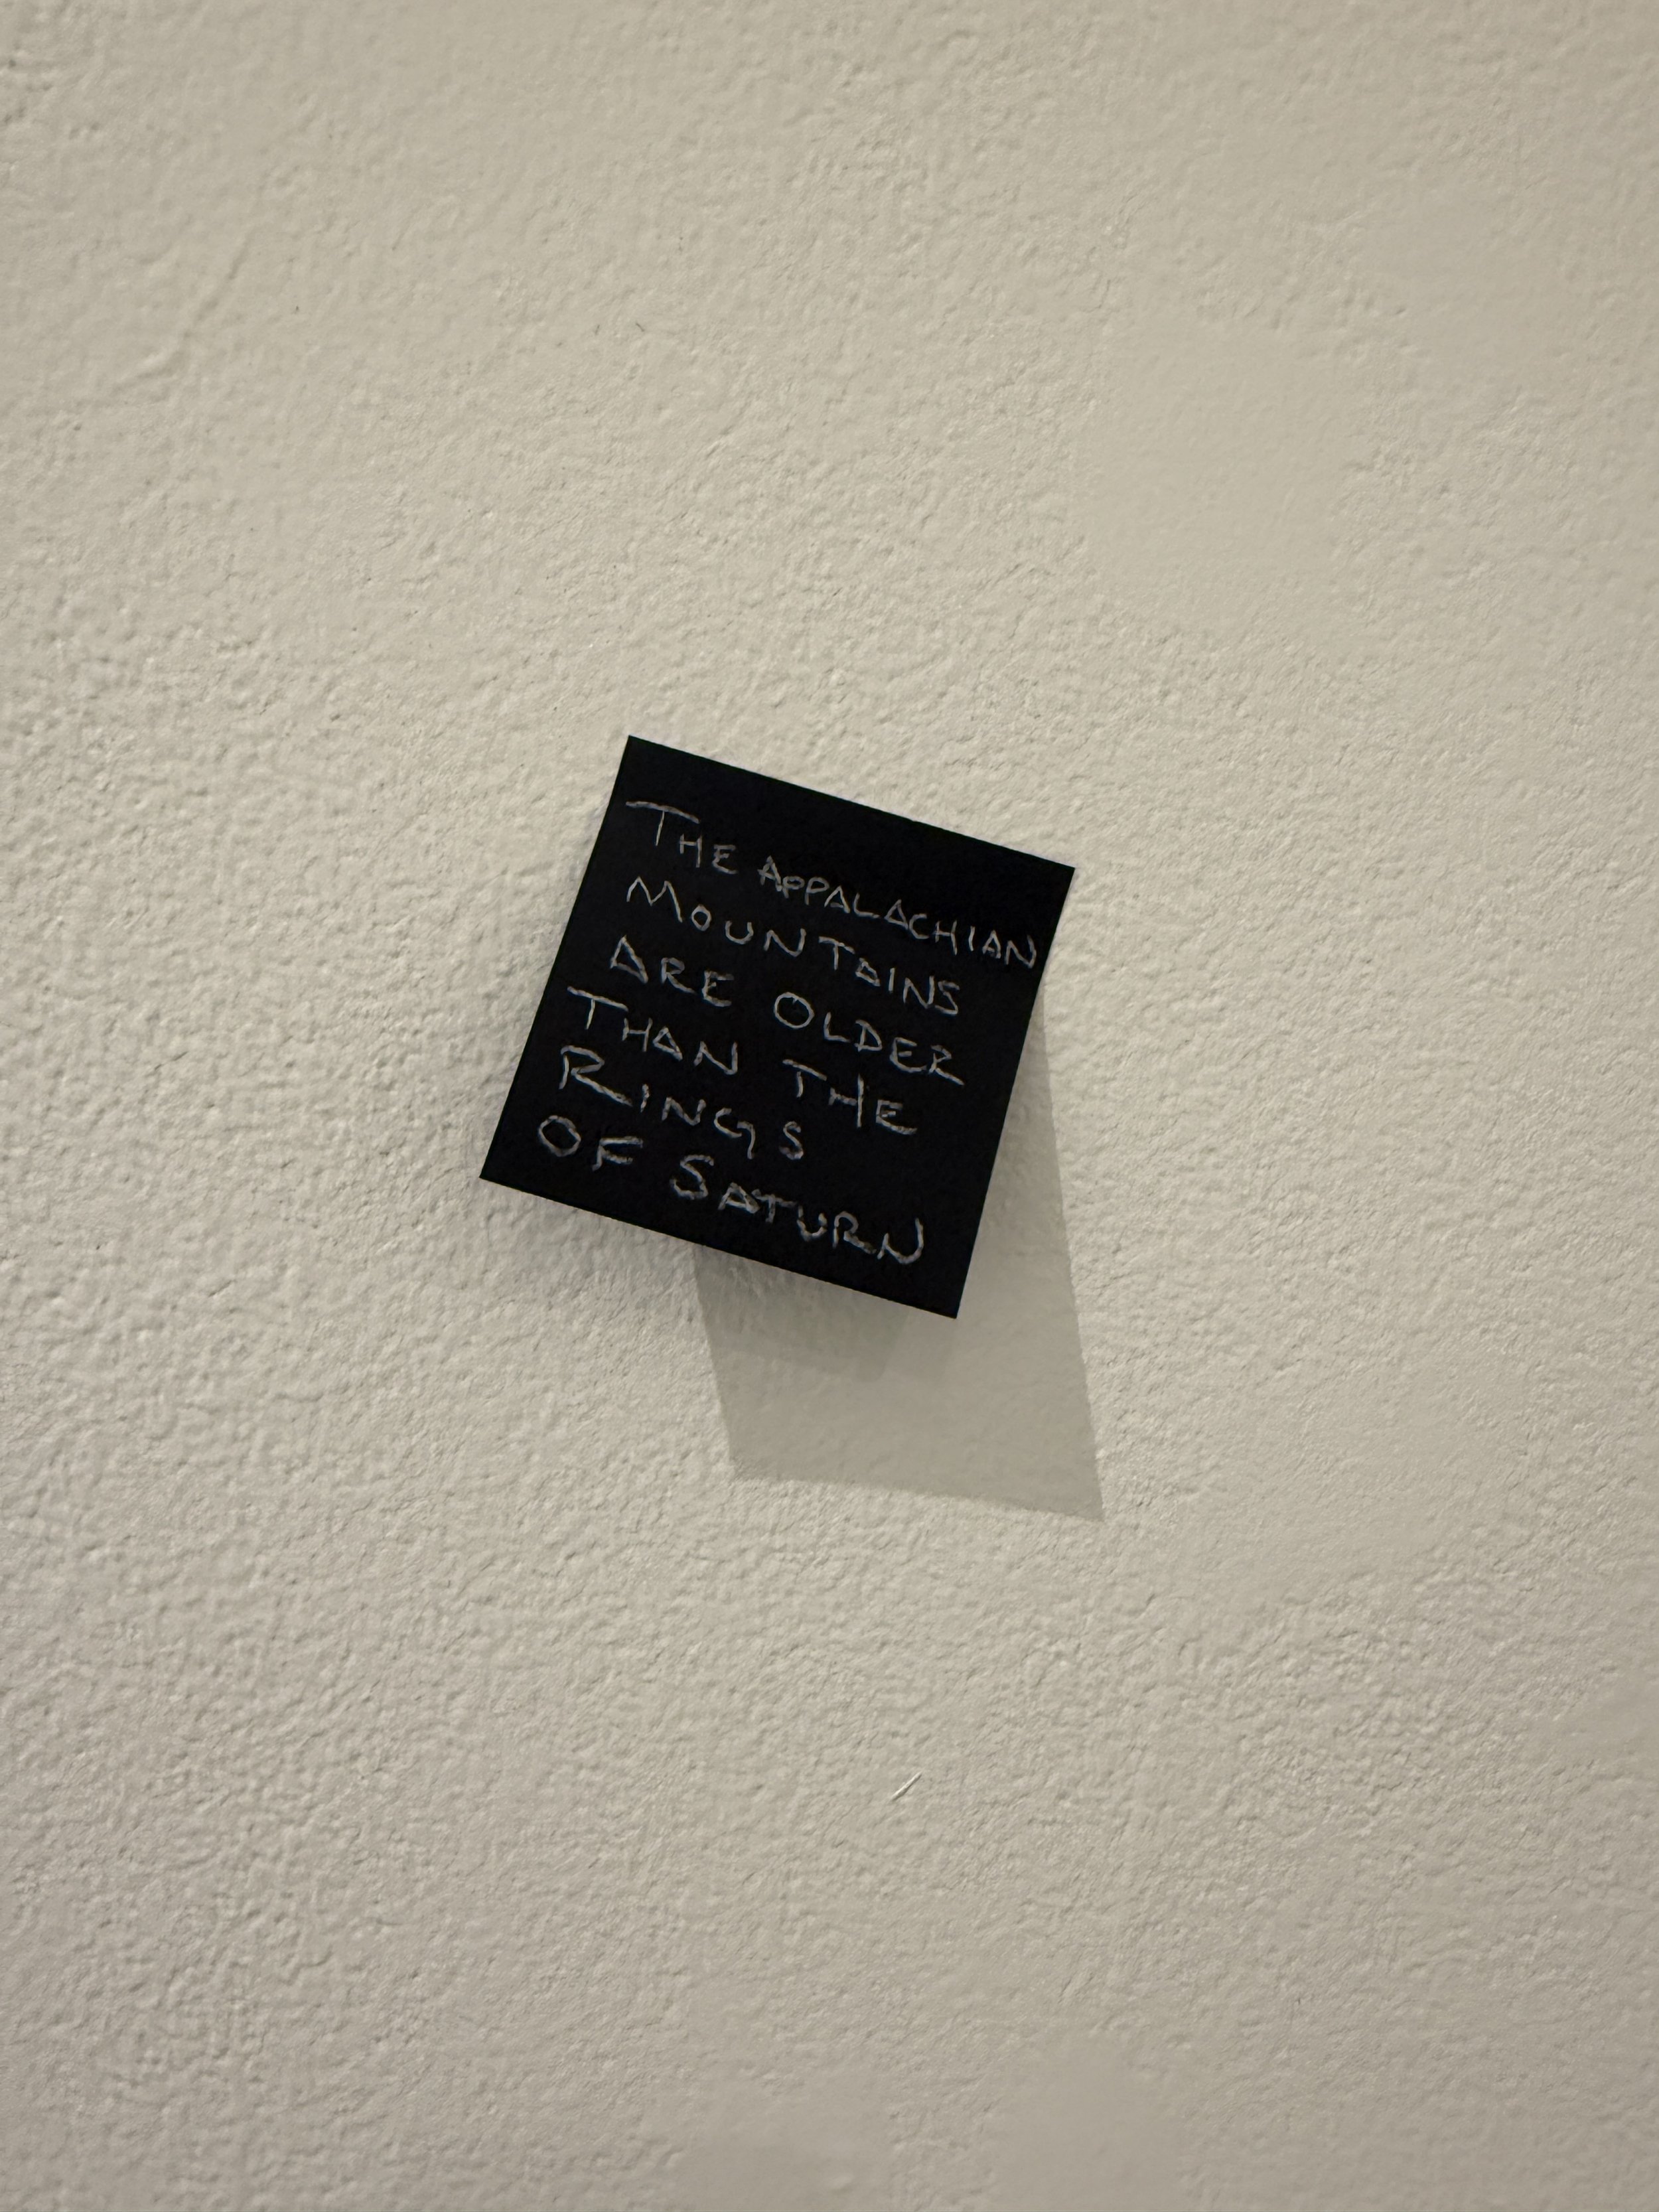 THE APPALACHIAN
MOUNTAINS
ARE OLDER
THAN THE
RINGS
OF SATURN